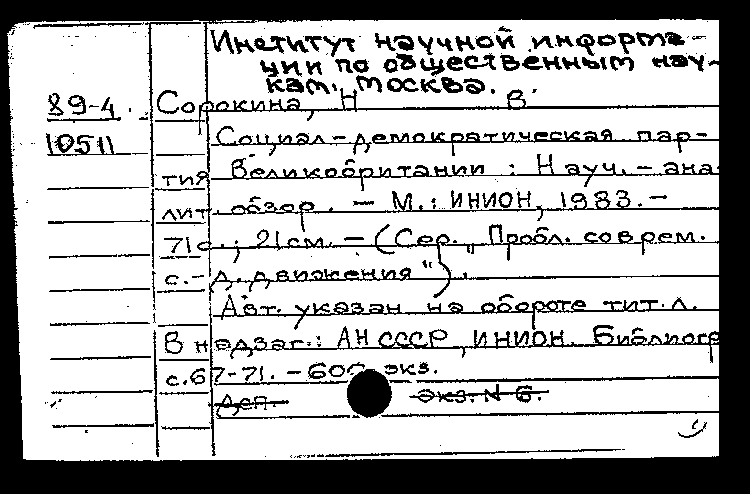 Институт научной информа-
ции по общественным нау-
кам. Москва.
89-4. Сорокина, Н В.
10511
Социал-демократическая пар-
тия Великобритании : Науч. - ана
лит обзор. - М. : ИНИОН, 1983. -
71с. ; 21см. - (Сер. "Пробл. соврем.
с.-д. движения").
Авт. указан на обороте тит. л.
В надзаг.: АН СССР, ИНИОН. Библиогр
с.67-71. - 600 экз.
Деп. Экз. N 6.